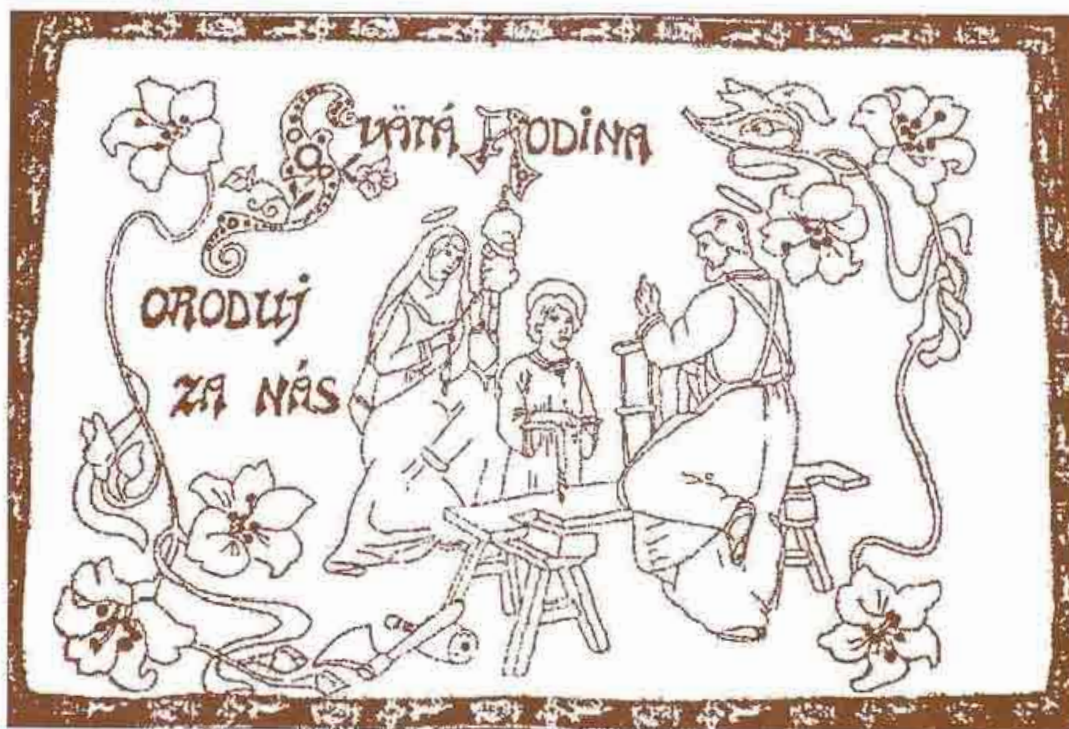 Svätá Rodina
ORODUJ
ZA NÁS